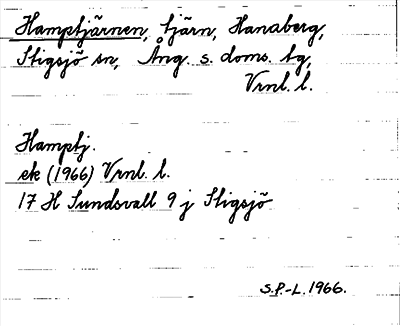 Hamptjärnen, tjärn, Hanaberg,
Stigsjö sn, Ång. s. doms. tg,
Vrnl. l.
Hamptj.
ek (1966) Vrnl. l.
17 H Sundsvall 9 j Stigsjö
S.P.-L. 1966.